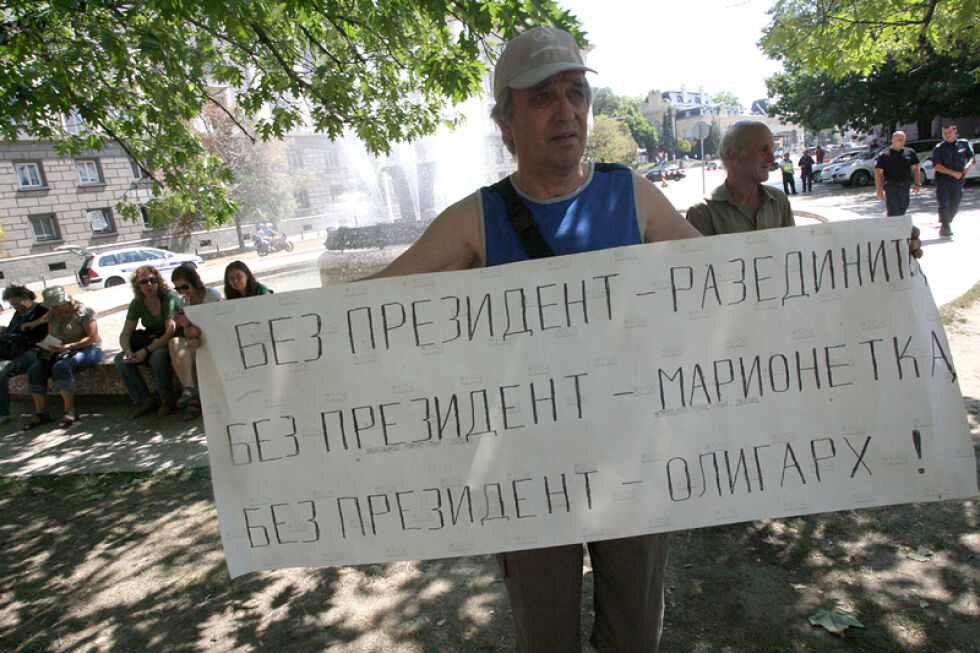 БЕЗ ПРЕЗИДЕНТ – РАЗЕДИНИТЕЛ
БЕЗ ПРЕЗИДЕНТ – МАРИОНЕТКА
БЕЗ ПРЕЗИДЕНТ – ОЛИГАРХ !